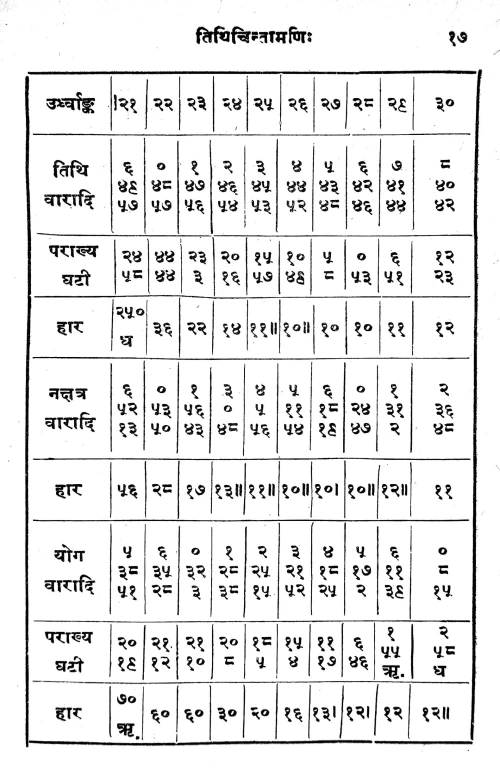 तिथिचिन्तामणिः १७
उर्ध्वाङ्क २१ २२ २३ २४ २५ २६ २७ २८ २९ ३०
तिथि ६ ० १ २ ३ ४ ५ ६ ७ ८
वारादि ४९ ४८ ४७ ४६ ४५ ४४ ४३ ४२ ४१ ४०
५७ ५७ ५६ ५४ ५३ ५२ ४८ ४६ ४४ ४२
पराख्य २४ ४४ २३ २० १५ १० ५ ० ६ १२
घटी ५८ ४४ ३ १६ ५७ ४९ ८ ५३ ५१ २३
हार २५० ३६ २२ १४ ११॥ १०॥ १० १० ११ १२
ध
नक्षत्र ६ ० १ ३ ४ ५ ६ ० १ २
वारादि ५२ ५३ ५६ ० ५ ११ १८ २४ ३१ ३६
१३ ५० ४३ ४८ ५६ ५४ १९ ४७ २ ४८
हार ५६ २८ १७ १३॥ ११॥ १०॥ १०। १०॥ १२॥ ११
योग ५ ६ ० १ २ ३ ४ ५ ६ ०
वारादि ३८ ३५ ३२ २८ २५ २१ १८ १७ ११ ८
५१ २८ ३ ३८ १५ ५२ २५ २ ३९ १५
पराख्य २० २१ २१ २० १८ १५ ११ ६ १ २
घटी १९ १२ १० ८ ५ ४ १७ ४६ ५५ ५८
ऋ. ध
हार ७० ६० ६० ३० २० १६ १३। १२। १२ १२॥
ऋ.